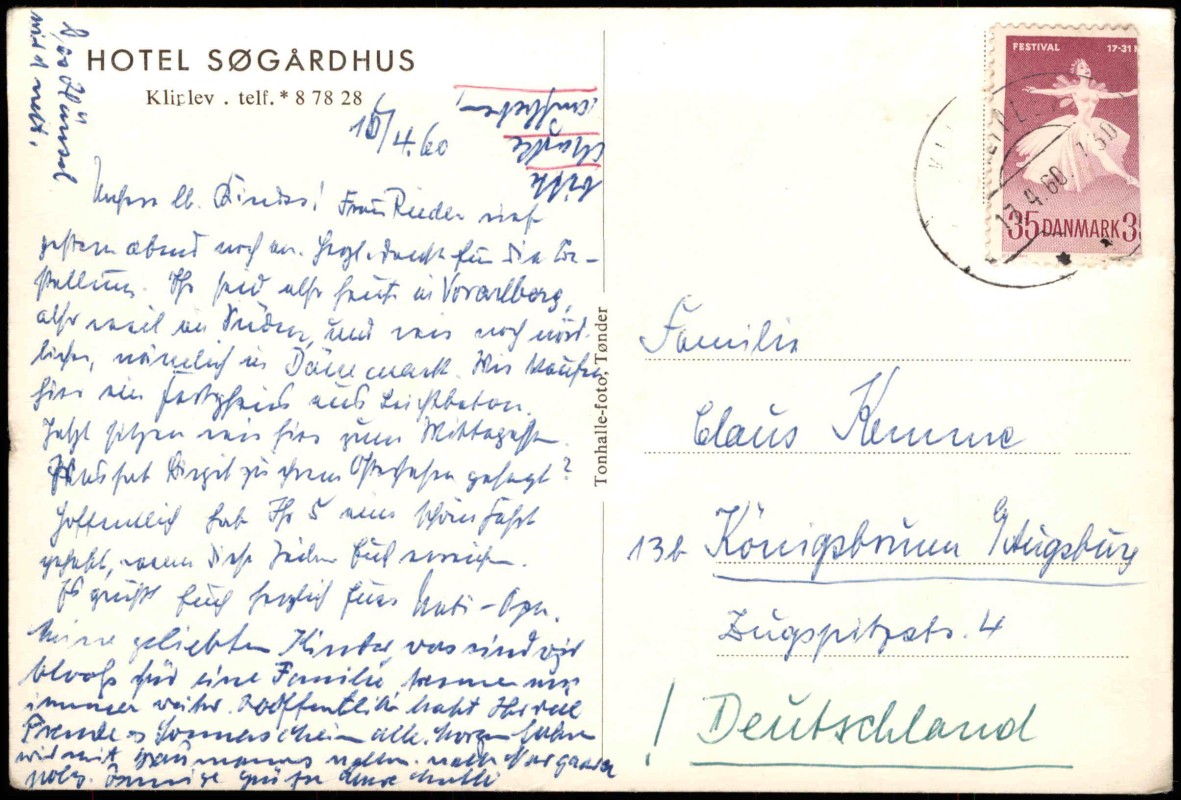 HOTEL SØGÅRDHUS
Kliplev . telf. * 8 78 28
/4.60
bitte
Marke
Unsere lb. Kinder! Frau Rieder rief
gestern abend noch an. Herzl. dank für die
Ihr seid also heute in Vorarlberg,
also weil im Süden, und wir noch nörd-
licher, nämlich in Dänemark. Wir kaufen
hier ein Fertighaus aus Leichtbeton.
Jetzt sitzen wir hier zum Mittagessen.
Was hat Birgit zu ihrem Osterhasen gesagt?
Hoffentlich habt Ihr 5 eine schöne Fahrt
gehabt, wenn diese Zeilen Euch erreichen.
Es grüßt Euch herzlich Euer
Meine geliebten Kinder, was sind wir
bloß für eine Familie, immer
immer weiter. Hoffentlich habt Ihr viel
Freude u. Sonnenschein alle. Morgen fahren
wir mit nach
innige Grüße Eure Mutti
Tonhalle-foto, Tønder
FESTIVAL 17-31 M
35 DANMARK 3
13.4.60.
Familie
Claus Kemme
13b Königsbrunn b/Augsburg
Zugspitzstr. 4
! Deutschland